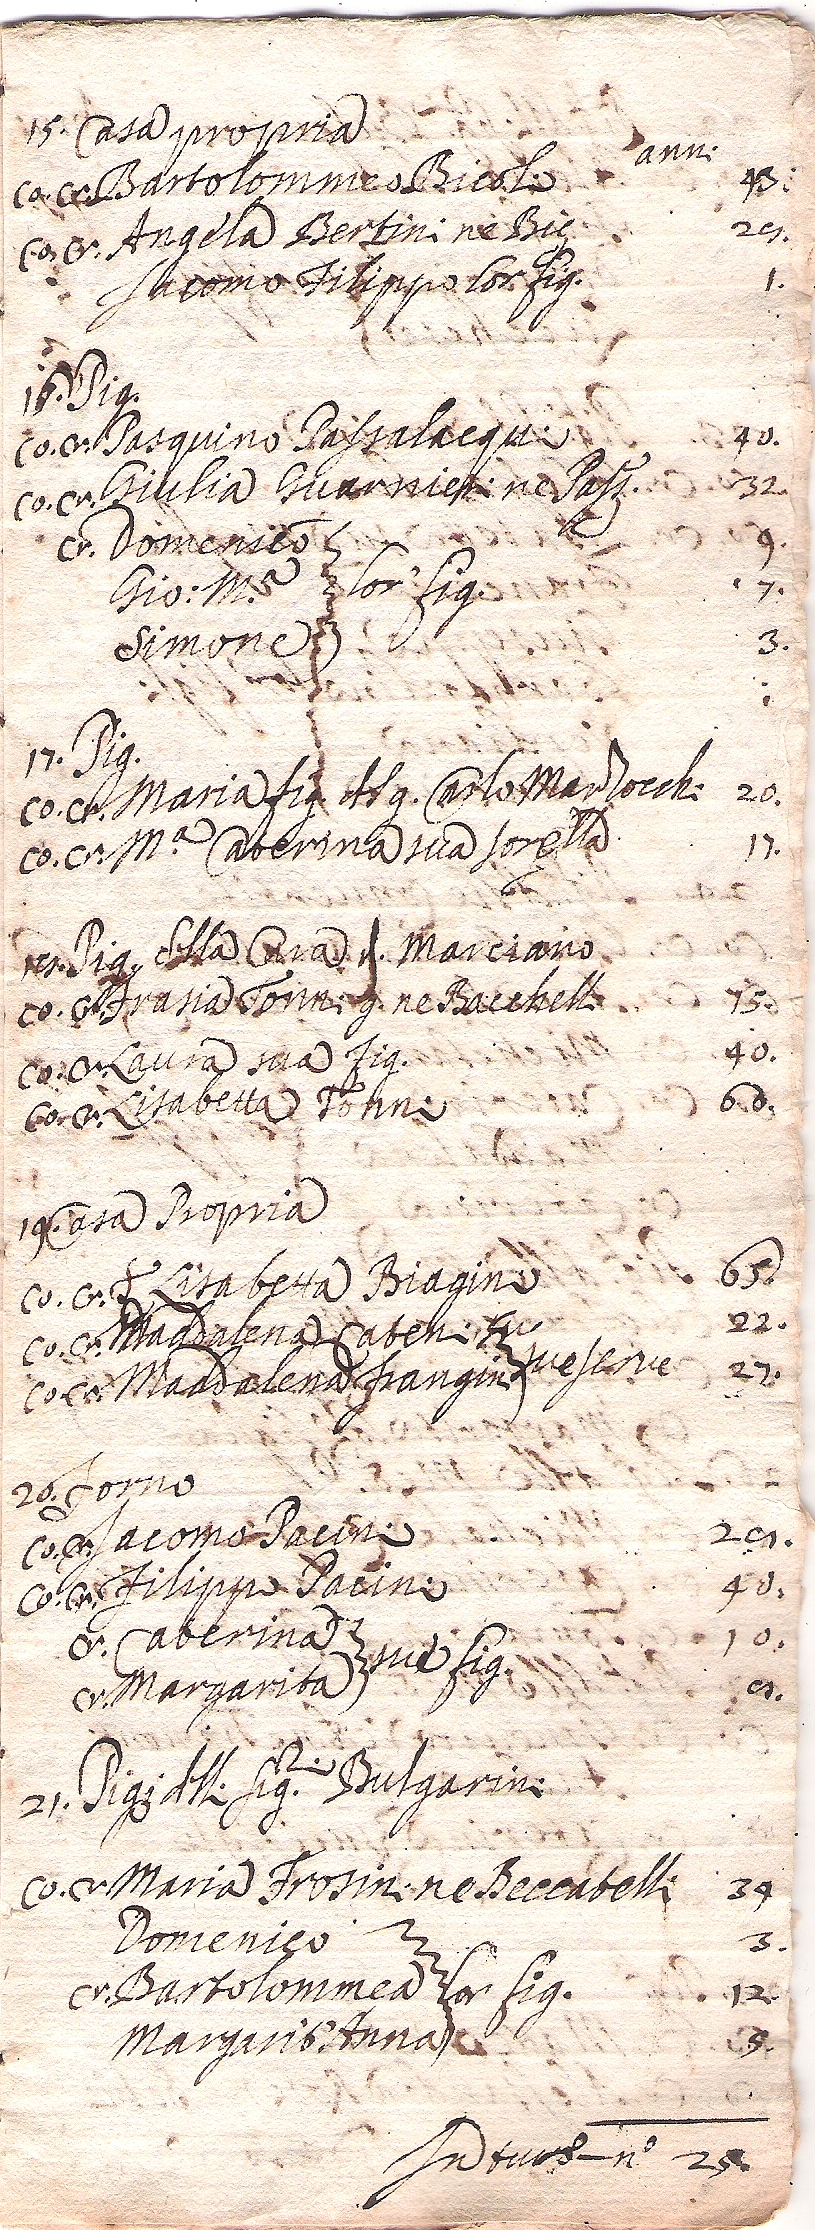 15. Casa propria
anni
co. cr. Bartolommeo Bicoli 43.
co. cr. Angela Bertini ne Bic.
Jacomo Filippo lor fig. 1.
16. Pig.
co. cr. Pasquino Passalacqui 40.
co. cr. Giulia Guarnieri ne Pass. 32.
cr. Domenico 9.
Gio: M.ª lor fig. 7.
Simone 3.
17. Pig.
co. cr. Maria fig. del q. Carlo Marzocchi 20.
co. cr. M.ª Caterina sua sorella 17.
Pig. della Cura di S. Marciano
co. cr. Frasia Tonni q. ne Bacchelli 75.
co. cr. Laura sua fig. 40.
co. cr. Lisabetta Tonni 60.
19. Casa Propria
co. cr. Lisabetta Biagini 65.
co. cr. Maddalena Cateni 22.
co. cr. Maddalena Frangini sue serve 27.
20. Forno
co. cr. Jacomo Pacini
co. cr. Filippo Pacini 40.
cr. Caterina 10.
cr. Margarita sue fig.
21. Pig. dell. sig.ri Bulgarini
co. cr. Maria Frosini ne Beccatelli 34
Domenico 3.
cr. Bartolommea lor fig. 12.
Margarita Anna 5.
In tutto nº 25.